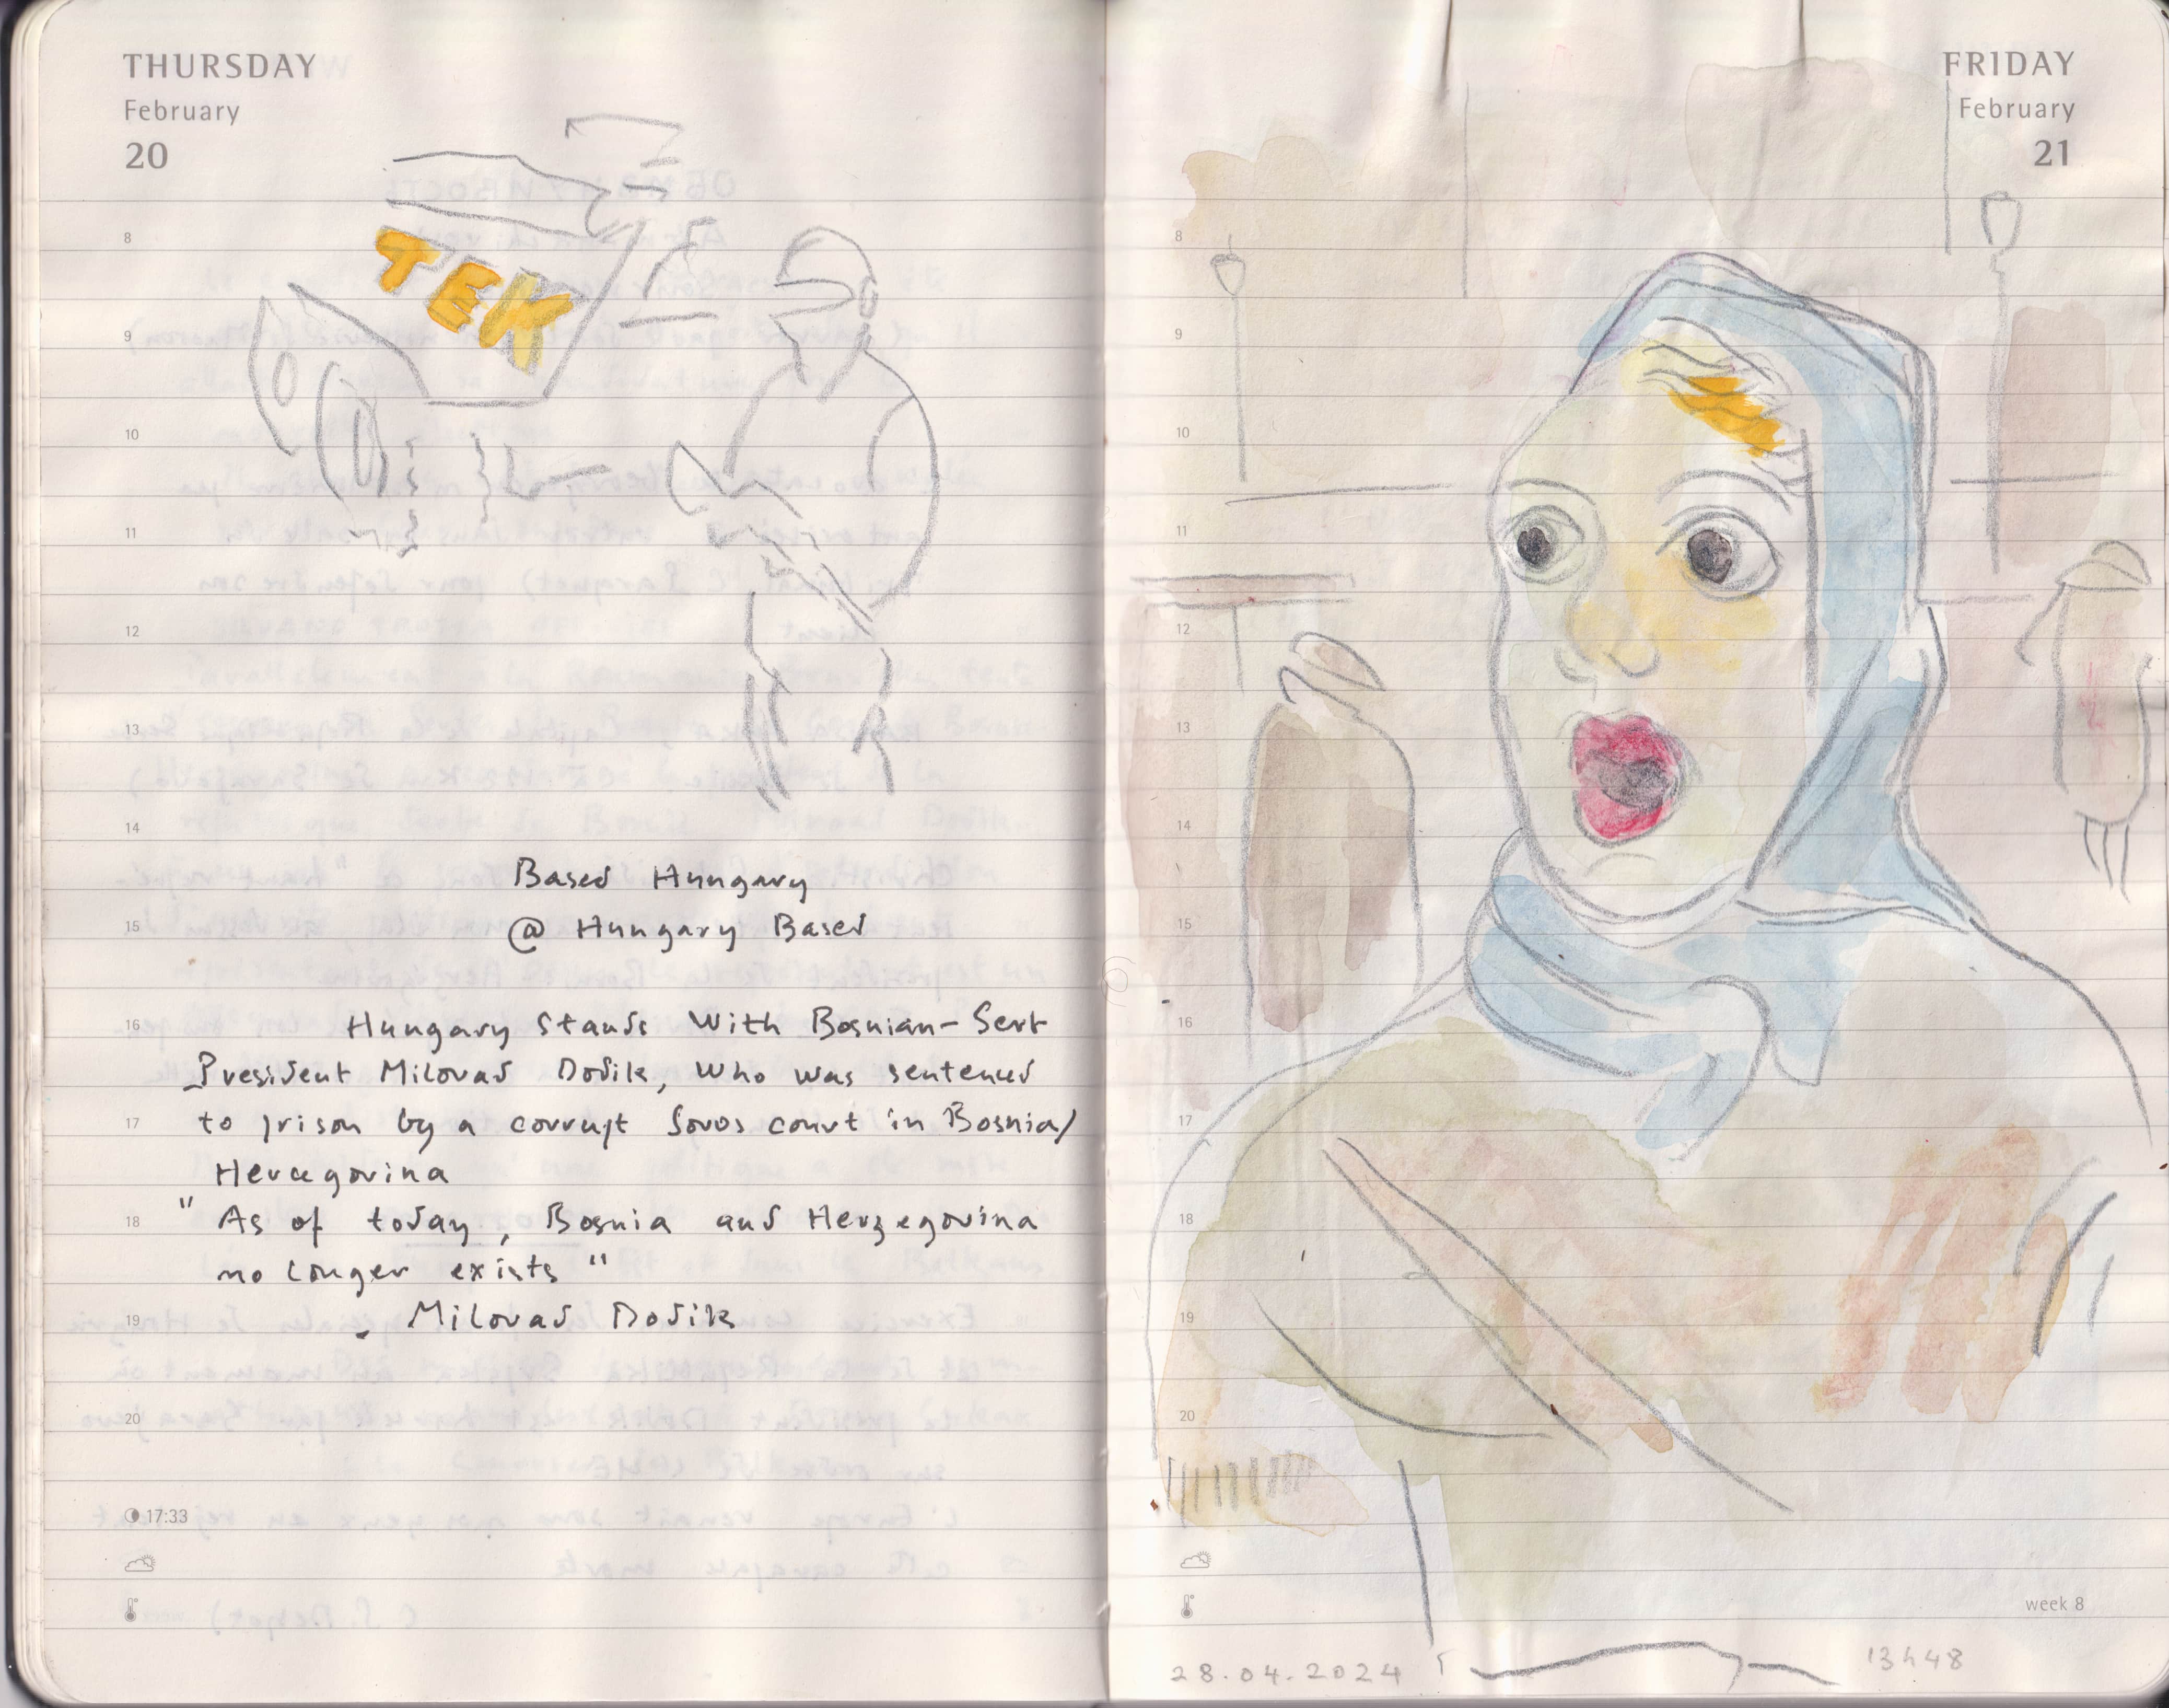 THURSDAY
February
20
TEK
8
9
10
11
12
13
14
Based Hungary
15
@ Hungary Based
16
Hungary stands With Bosnian-Serb
President Milorad Dodik, Who was sentenced
17
to prison by a corrupt Soros court in Bosnia/
Hercegovina
18
" As of today, Bosnia and Herzegovina
no longer exists "
19
- Milorad Dodik
20
17:33
FRIDAY
February
21
8
9
10
11
12
13
14
15
16
17
18
19
20
week 8
28.04.2024
13h48